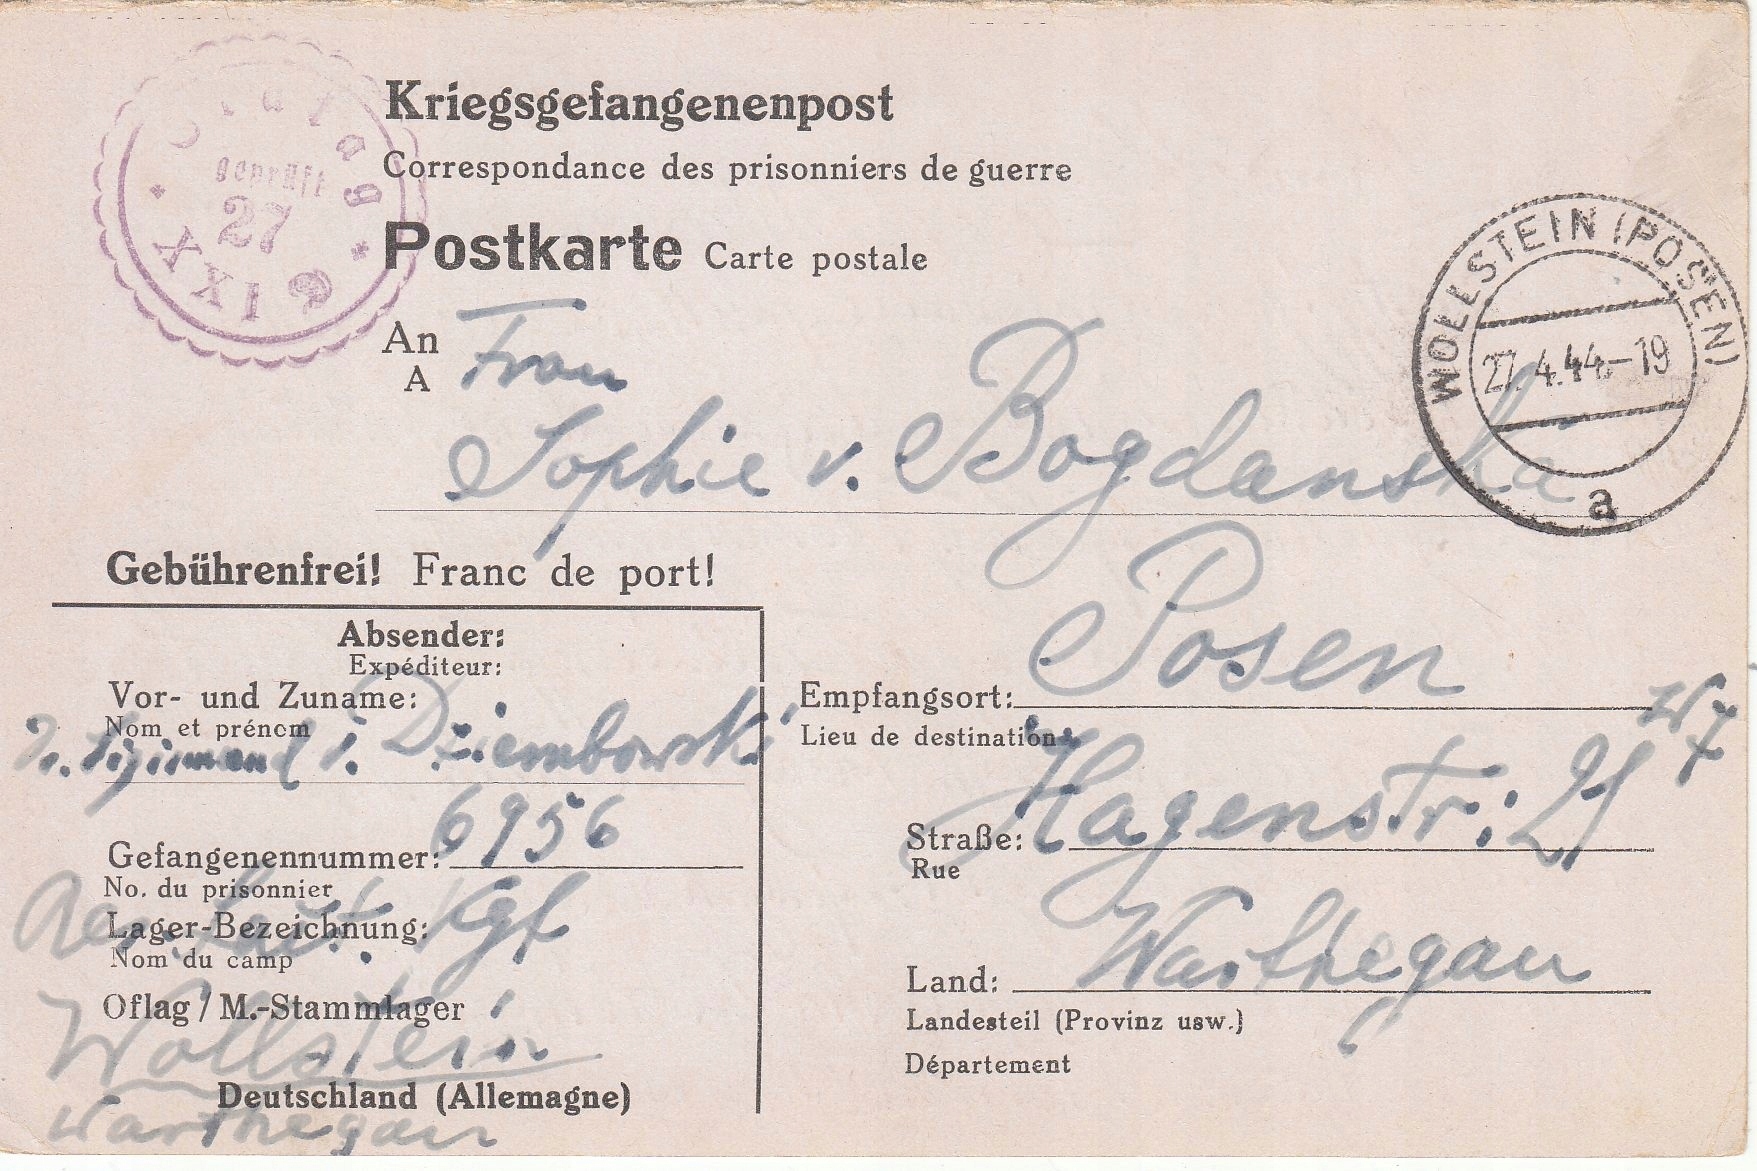 Stalag
geprüft
27
XXI
Kriegsgefangenenpost
Correspondance des prisonniers de guerre
Postkarte Carte postale
WOLLSTEIN (POSEN)
27.4.44.-19
a
An
A
Frau
Sophie v. Bogdanska
Gebührenfrei! Franc de port!
Absender:
Expéditeur:
Vor- und Zuname:
Nom et prénom
v. Dziembowski
6956
Gefangenennummer:
No. du prisonnier
Kgf
Lager-Bezeichnung:
Nom du camp
Oflag / M.-Stammlager
Wollstein
Deutschland (Allemagne)
Warthegau
Posen
Empfangsort:
Lieu de destination
W 7
Hagenstr:
Straße:
Rue
Warthegau
Land:
Landesteil (Provinz usw.)
Département